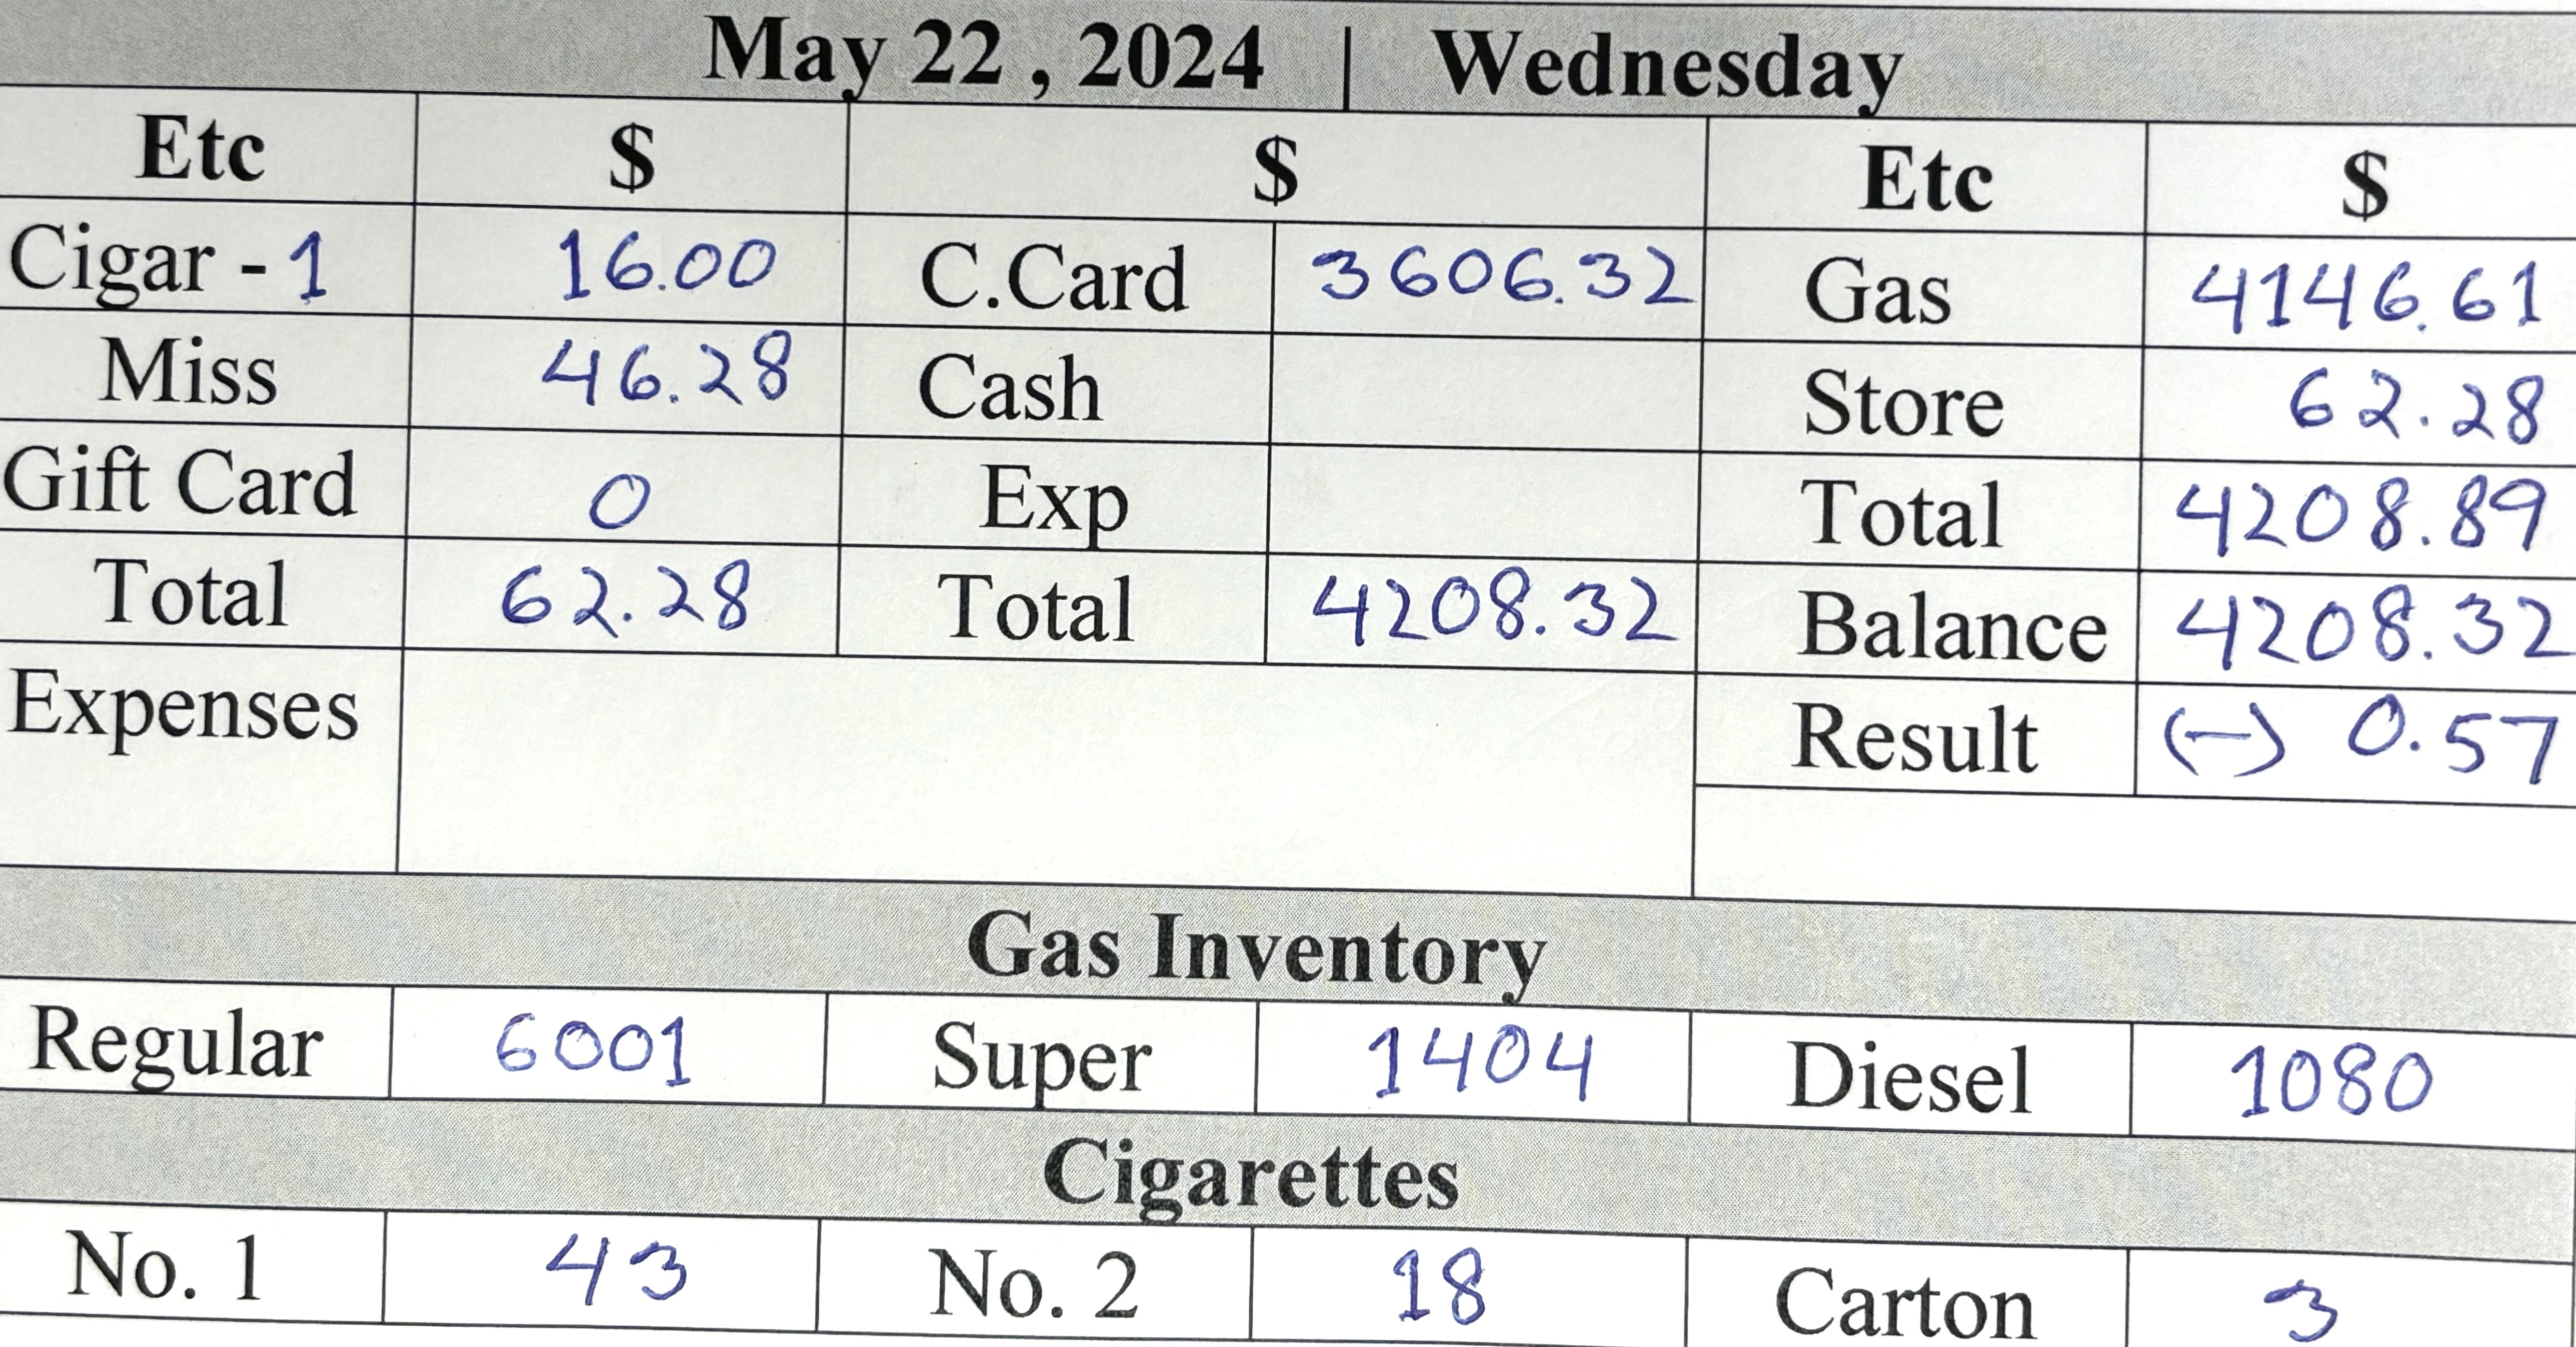 May 22 , 2024 | Wednesday
Etc $ $ Etc $
Cigar - 1 16.00 C.Card 3606.32 Gas 4146.61
Miss 46.28 Cash Store 62.28
Gift Card 0 Exp Total 4208.89
Total 62.28 Total 4208.32 Balance 4208.32
Expenses Result (-) 0.57
Gas Inventory
Regular 6001 Super 1404 Diesel 1080
Cigarettes
No. 1 43 No. 2 18 Carton 3